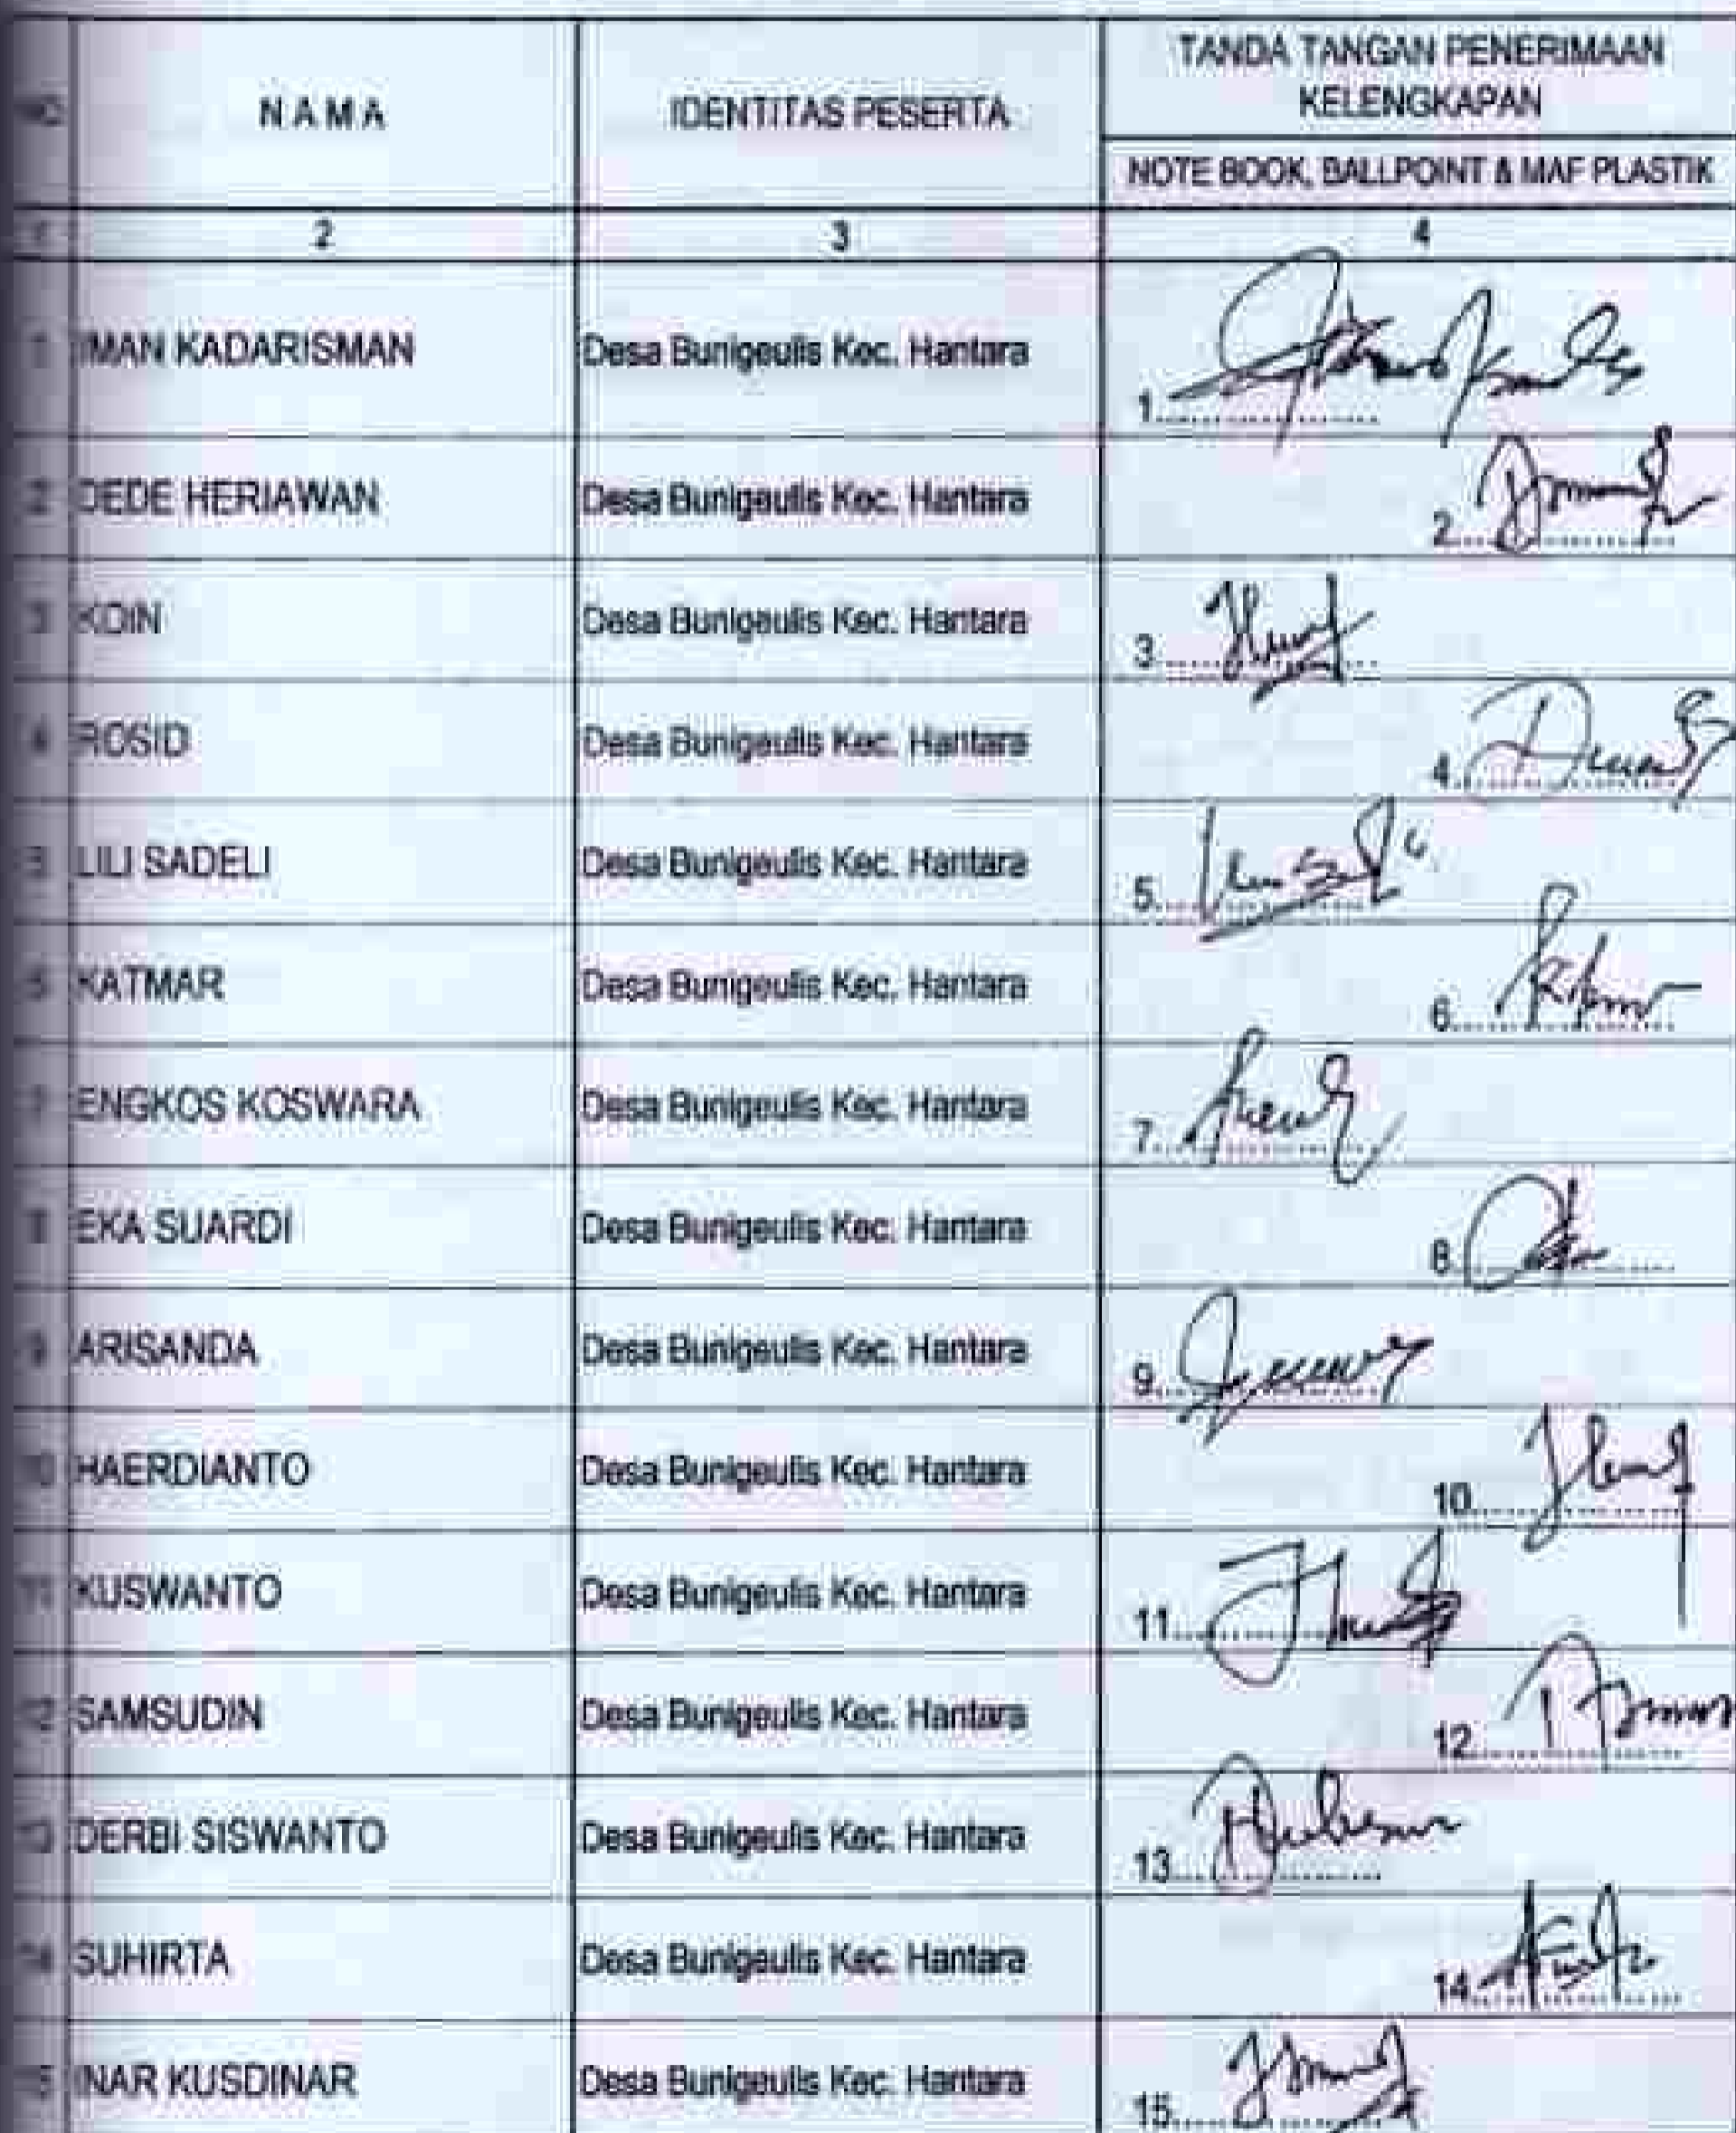 NO
N A M A
IDENTITAS PESERTA
TANDA TANGAN PENERIMAAN
KELENGKAPAN
NOTE BOOK, BALLPOINT & MAF PLASTIK
1 2 3 4
1 IMAN KADARISMAN Desa Bunigeulis Kec. Hantara 1
2 DEDE HERIAWAN Desa Bunigeulis Kec. Hantara 2
3 KOIN Desa Bunigeulis Kec. Hantara 3
4 ROSID Desa Bunigeulis Kec. Hantara 4
5 LILI SADELI Desa Bunigeulis Kec. Hantara 5
6 KATMAR Desa Bunigeulis Kec. Hantara 6
7 ENGKOS KOSWARA Desa Bunigeulis Kec. Hantara 7
8 EKA SUARDI Desa Bunigeulis Kec. Hantara 8
9 ARISANDA Desa Bunigeulis Kec. Hantara 9
10 HAERDIANTO Desa Bunigeulis Kec. Hantara 10
11 KUSWANTO Desa Bunigeulis Kec. Hantara 11
12 SAMSUDIN Desa Bunigeulis Kec. Hantara 12
13 DERBI SISWANTO Desa Bunigeulis Kec. Hantara 13
14 SUHIRTA Desa Bunigeulis Kec. Hantara 14
15 INAR KUSDINAR Desa Bunigeulis Kec. Hantara 15